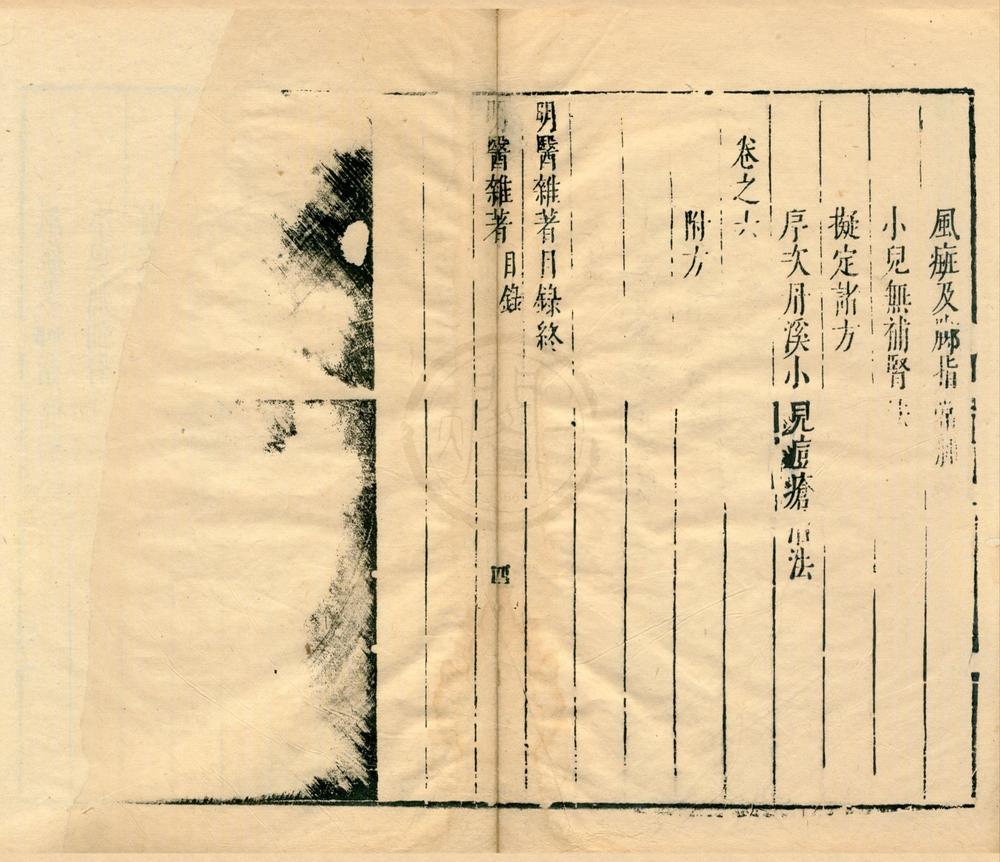 風症及脚指常腫
小兒無補腎法
擬定諸方
序次丹溪小兒痘瘡治法
卷之六
附方
明醫雜著目錄終
明醫雜著 目錄 四